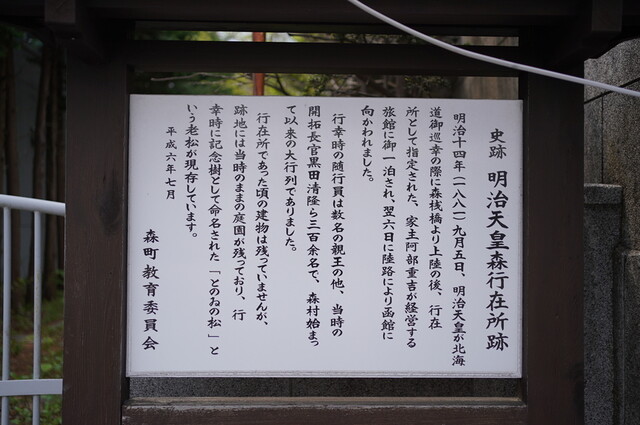 史跡 明治天皇森行在所跡
明治十四年(一八八一)九月五日、明治天皇が北海
道御巡幸の際に森桟橋より上陸の後、行在
所として指定された、家主阿部重吉が経営する
旅館に御一泊され、翌六日に陸路により函館に
向かわれました。
行幸時の随行員は数名の親王の他、当時の
開拓長官黒田清隆ら三百余名で、森村始まっ
て以来の大行列でありました。
行在所であった頃の建物は残っていませんが、
跡地には当時のままの庭園が残っており、行
幸時に記念樹として命名された「とのゐの松」と
いう老松が現存しています。
平成六年七月
森町教育委員会